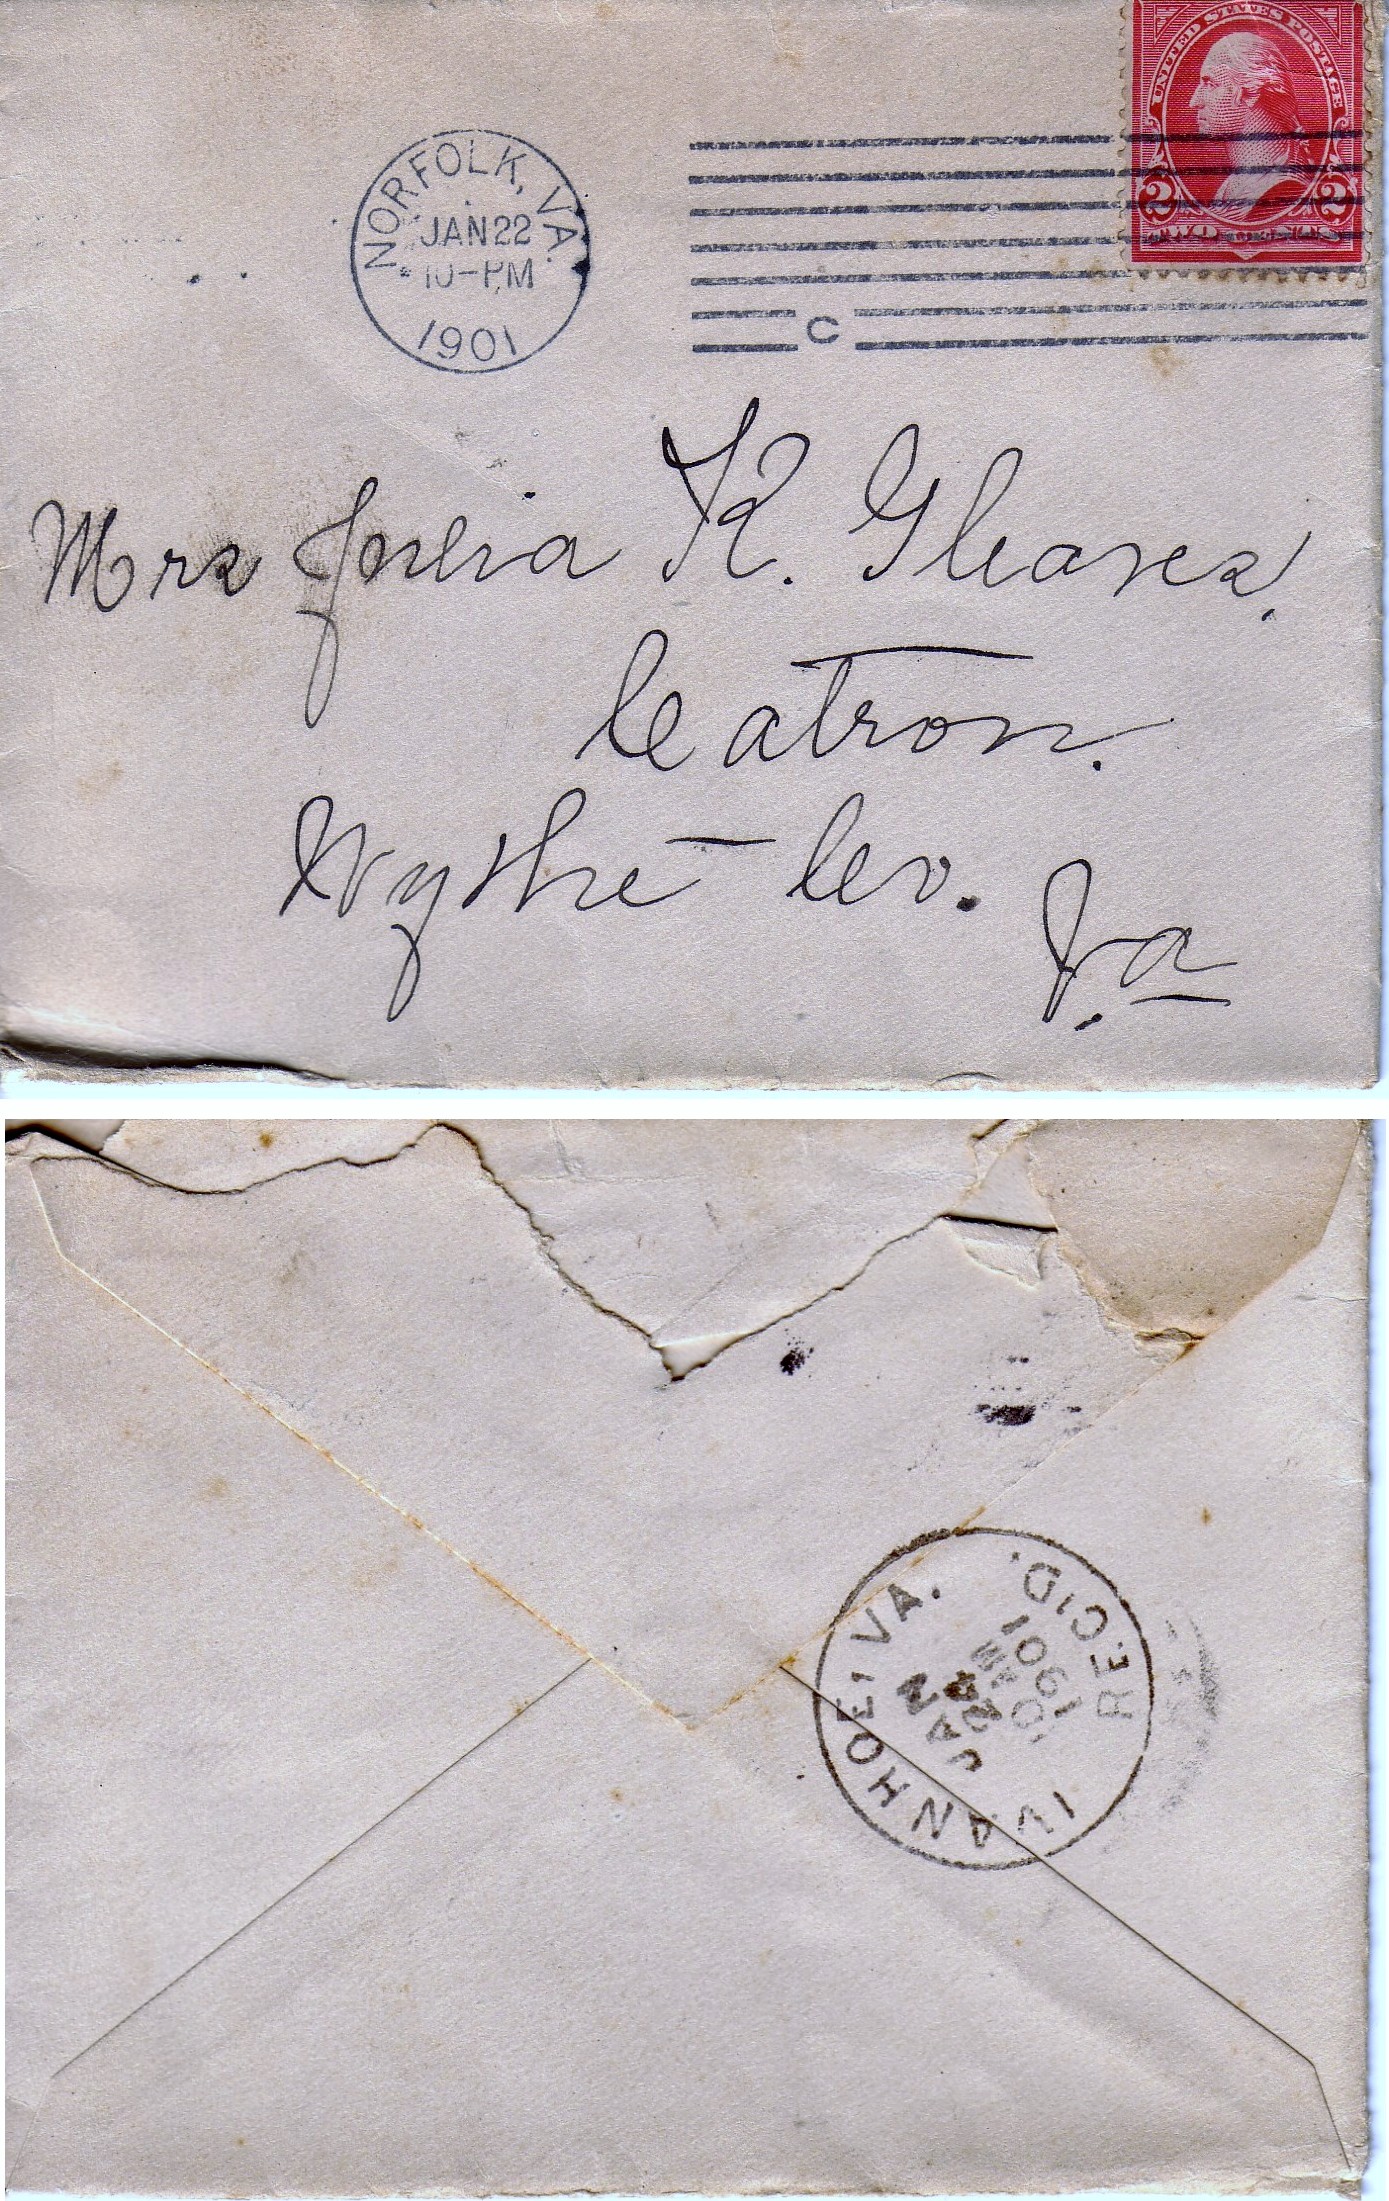 UNITED STATES POSTAGE
2 2
NORFOLK, VA.
JAN 22
10-PM
1901
C
Mrs Julia K. Gleaves,
Catron.
Wythe - Co. Va
IVANHOE, VA.
JAN
24
10 AM
1901
REC'D.